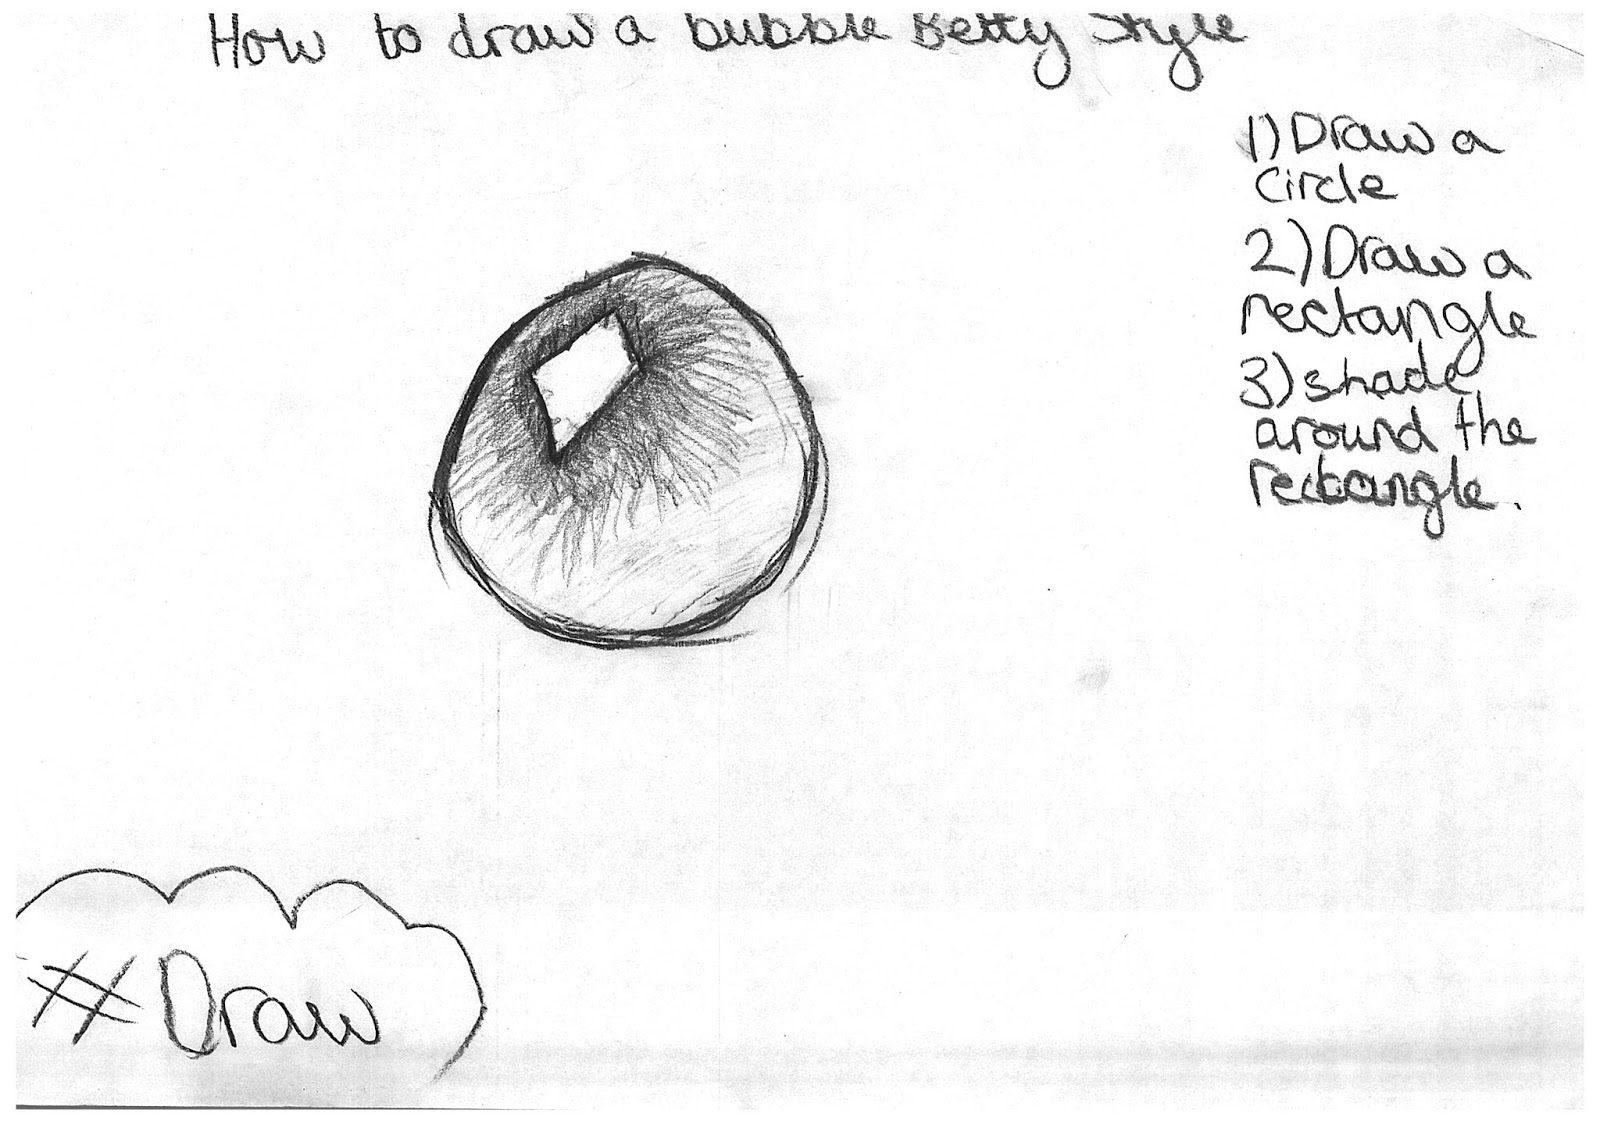 How to draw a bubble Betty Style
1) Draw a
circle
2) Draw a
rectangle
3) shade
around the
rectangle.
# Draw